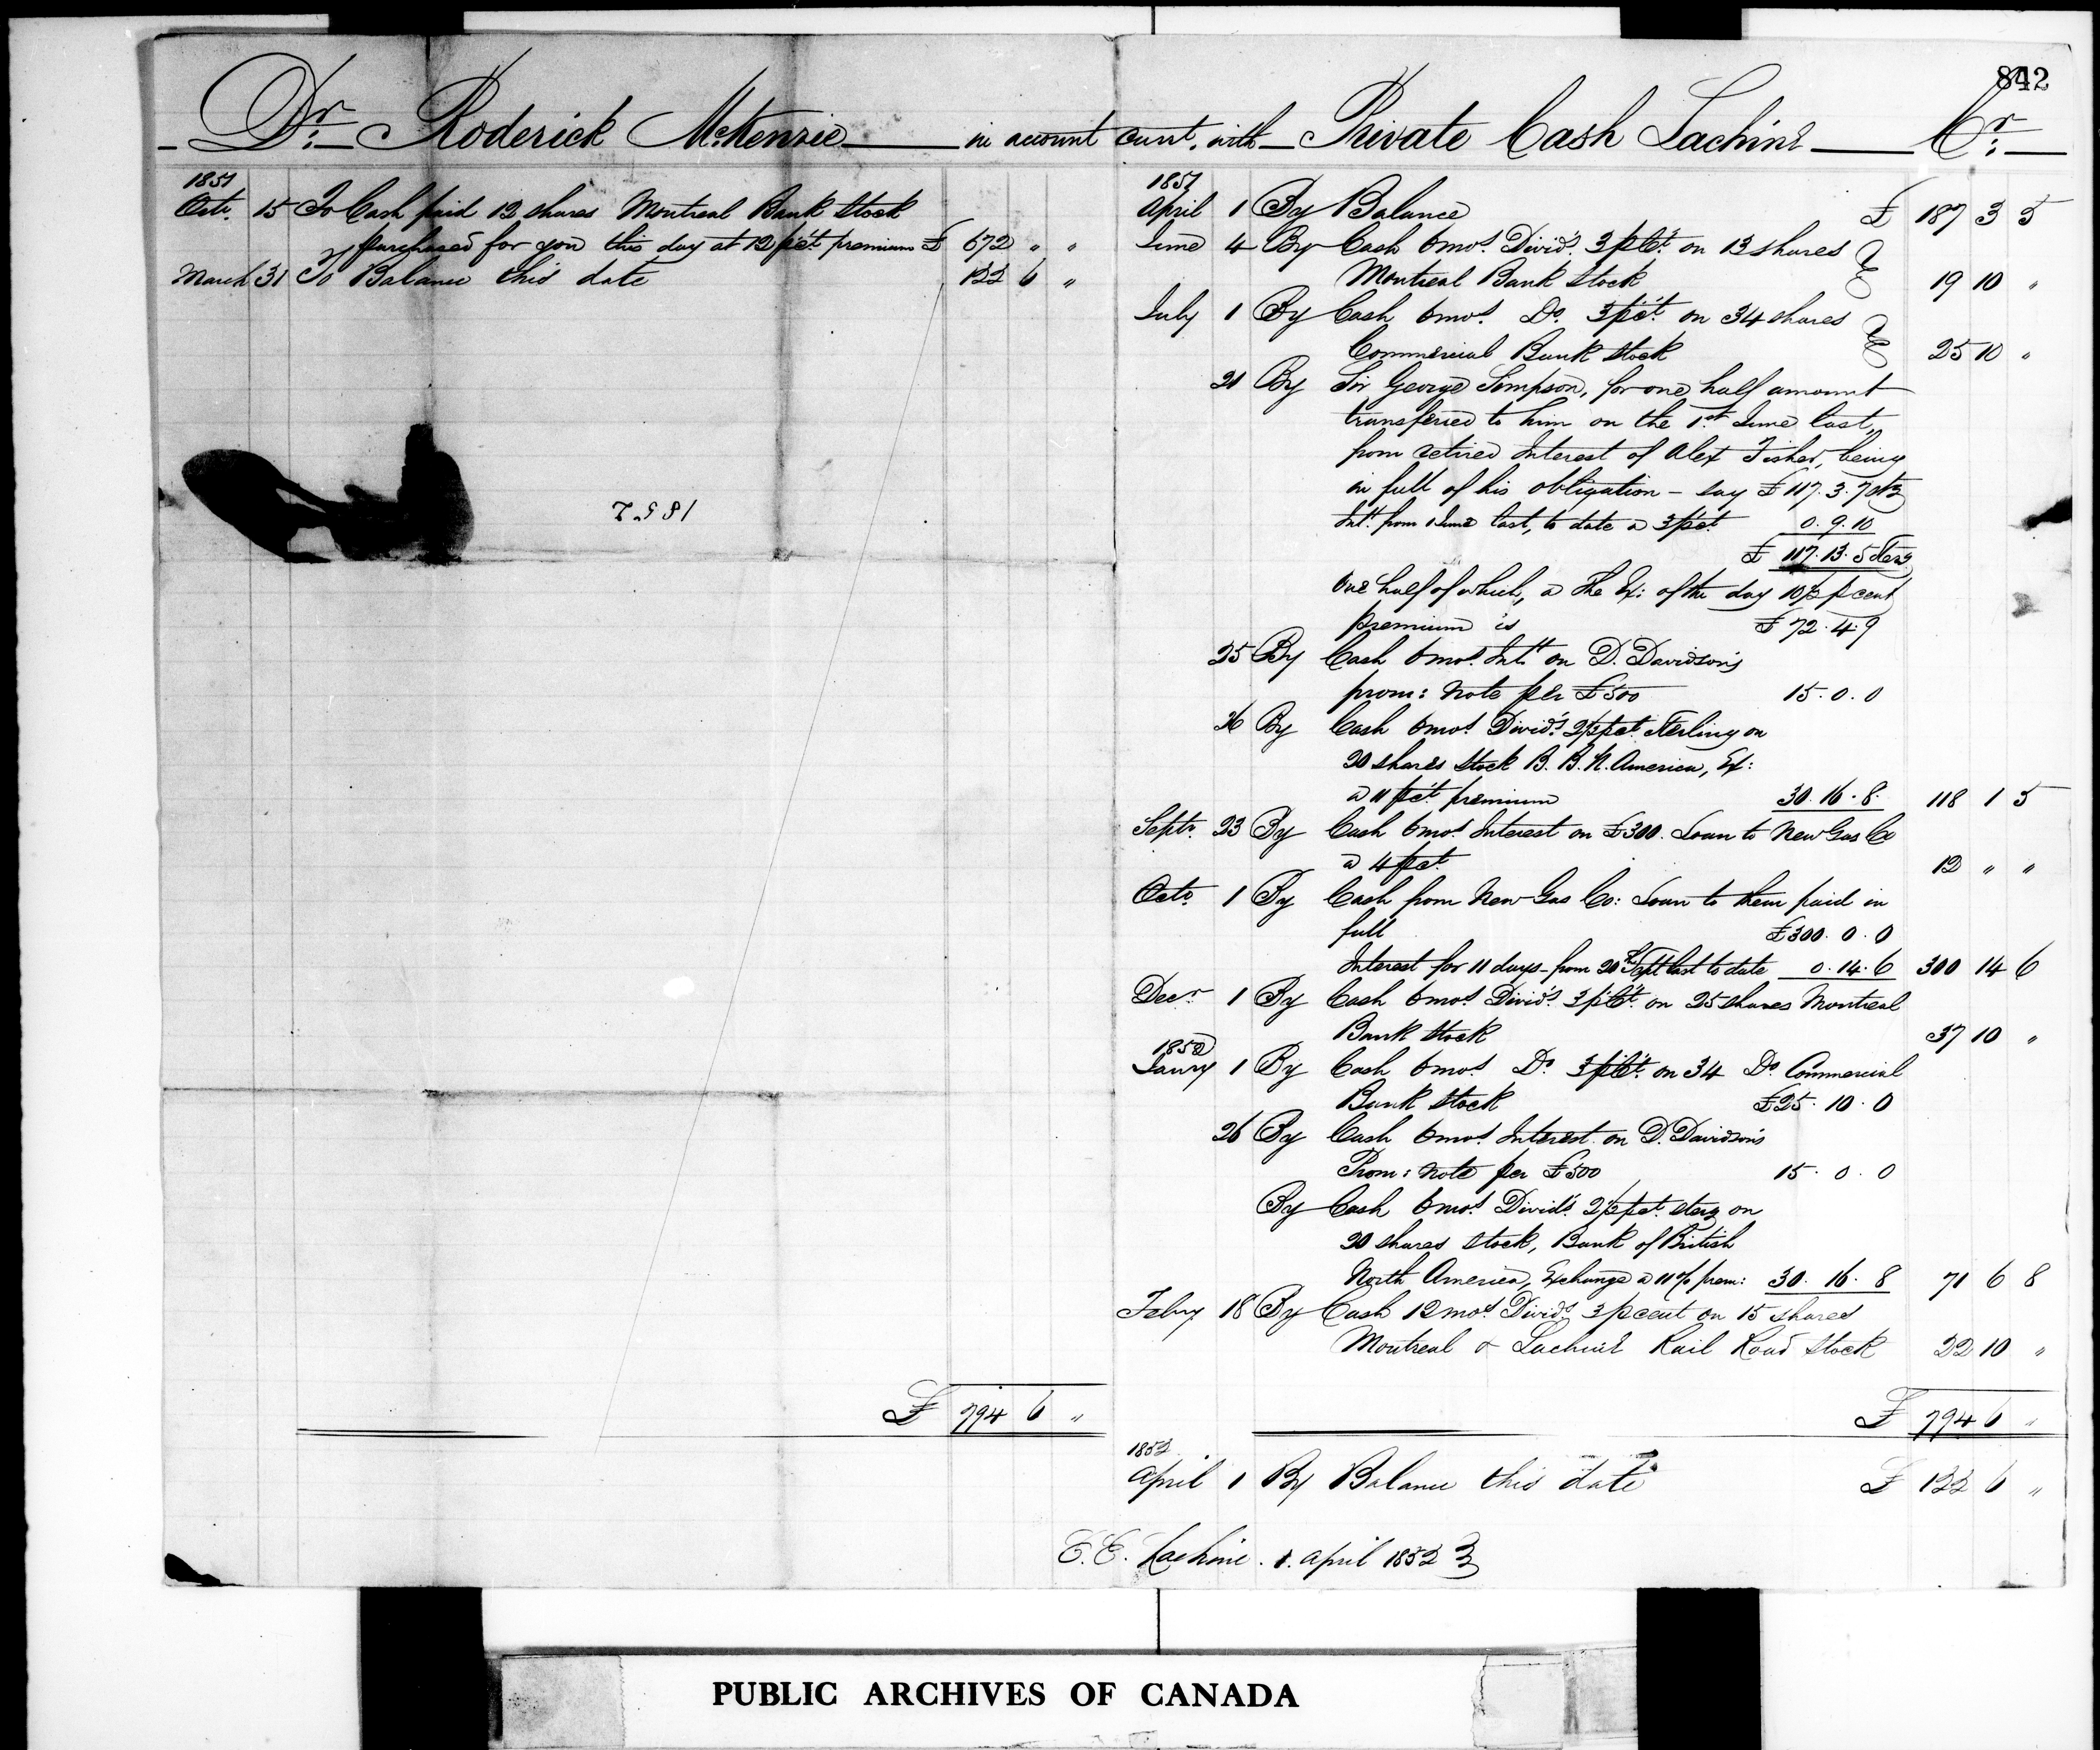 842
Dr. Roderick McKenzie in account curt. with Private Cash Lachine Cr.
1851
Octr. 15 To Cash paid 12 shares Montreal Bank Stock
purchased for you this day at 12 pct. premium £ 672 " "
March 31 To Balance this date 122 6 "
1852
£ 794 6 "
1851
April 1 By Balance £ 187 3 5
June 4 By Cash 6 mos. Divid. 3 pct. on 13 shares
Montreal Bank Stock 19 10 "
July 1 By Cash 6 mos. Do. 3 pct. on 34 shares
Commercial Bank Stock 25 10 "
21 By Sir George Simpson, for one half amount
transferred to him on the 1st June last,
from retired Interest of Alex Fisher, being
in full of his obligation - say £ 117. 3. 7 stg
Intt. from 1 June last, to date a 3 pct 0. 9. 10
£ 117. 13. 5 sterg
One half of which, a the Ex: of the day 10½ p cent
premium is £ 72. 4. 9
25 By Cash 6 mos. Intt. on D. Davidson's
prom: note per £500 15. 0. 0
26 By Cash 6 mos. Divid. 2½ pct Sterling on
20 shares Stock B. B. N. America, Ex:
a 11 pct premium 30. 16. 8. 118 1 5
Septr. 23 By Cash 6 mos. Interest on £300. Loan to New Gas Co
a 4 pct. 12 " "
Octr. 1 By Cash from New Gas Co: Loan to them paid in
full £300. 0. 0
Interest for 11 days - from 20th Sept last to date 0. 14. 6 300 14 6
Decr. 1 By Cash 6 mos. Divid. 3 pct. on 25 shares Montreal
Bank Stock 37 10 "
1852
Janry 1 By Cash 6 mos. Do. 3 pct. on 34 Do. Commercial
Bank Stock £25. 10. 0
26 By Cash 6 mos. Interest on D. Davidson's
Prom: note per £500 15. 0. 0
By Cash 6 mos. Divid. 2½ pct. sterg on
20 shares stock, Bank of British
North America, Exchange a 11 % prem: 30. 16. 8 71 6 8
Febry 18 By Cash 12 mos. Divid. 3 p cent on 15 shares
Montreal & Lachine Rail Road Stock 22 10 "
£ 794 6 "
1852
April 1 By Balance this date £ 122 6 "
E. E. Lachine. 1. April 1852
PUBLIC ARCHIVES OF CANADA